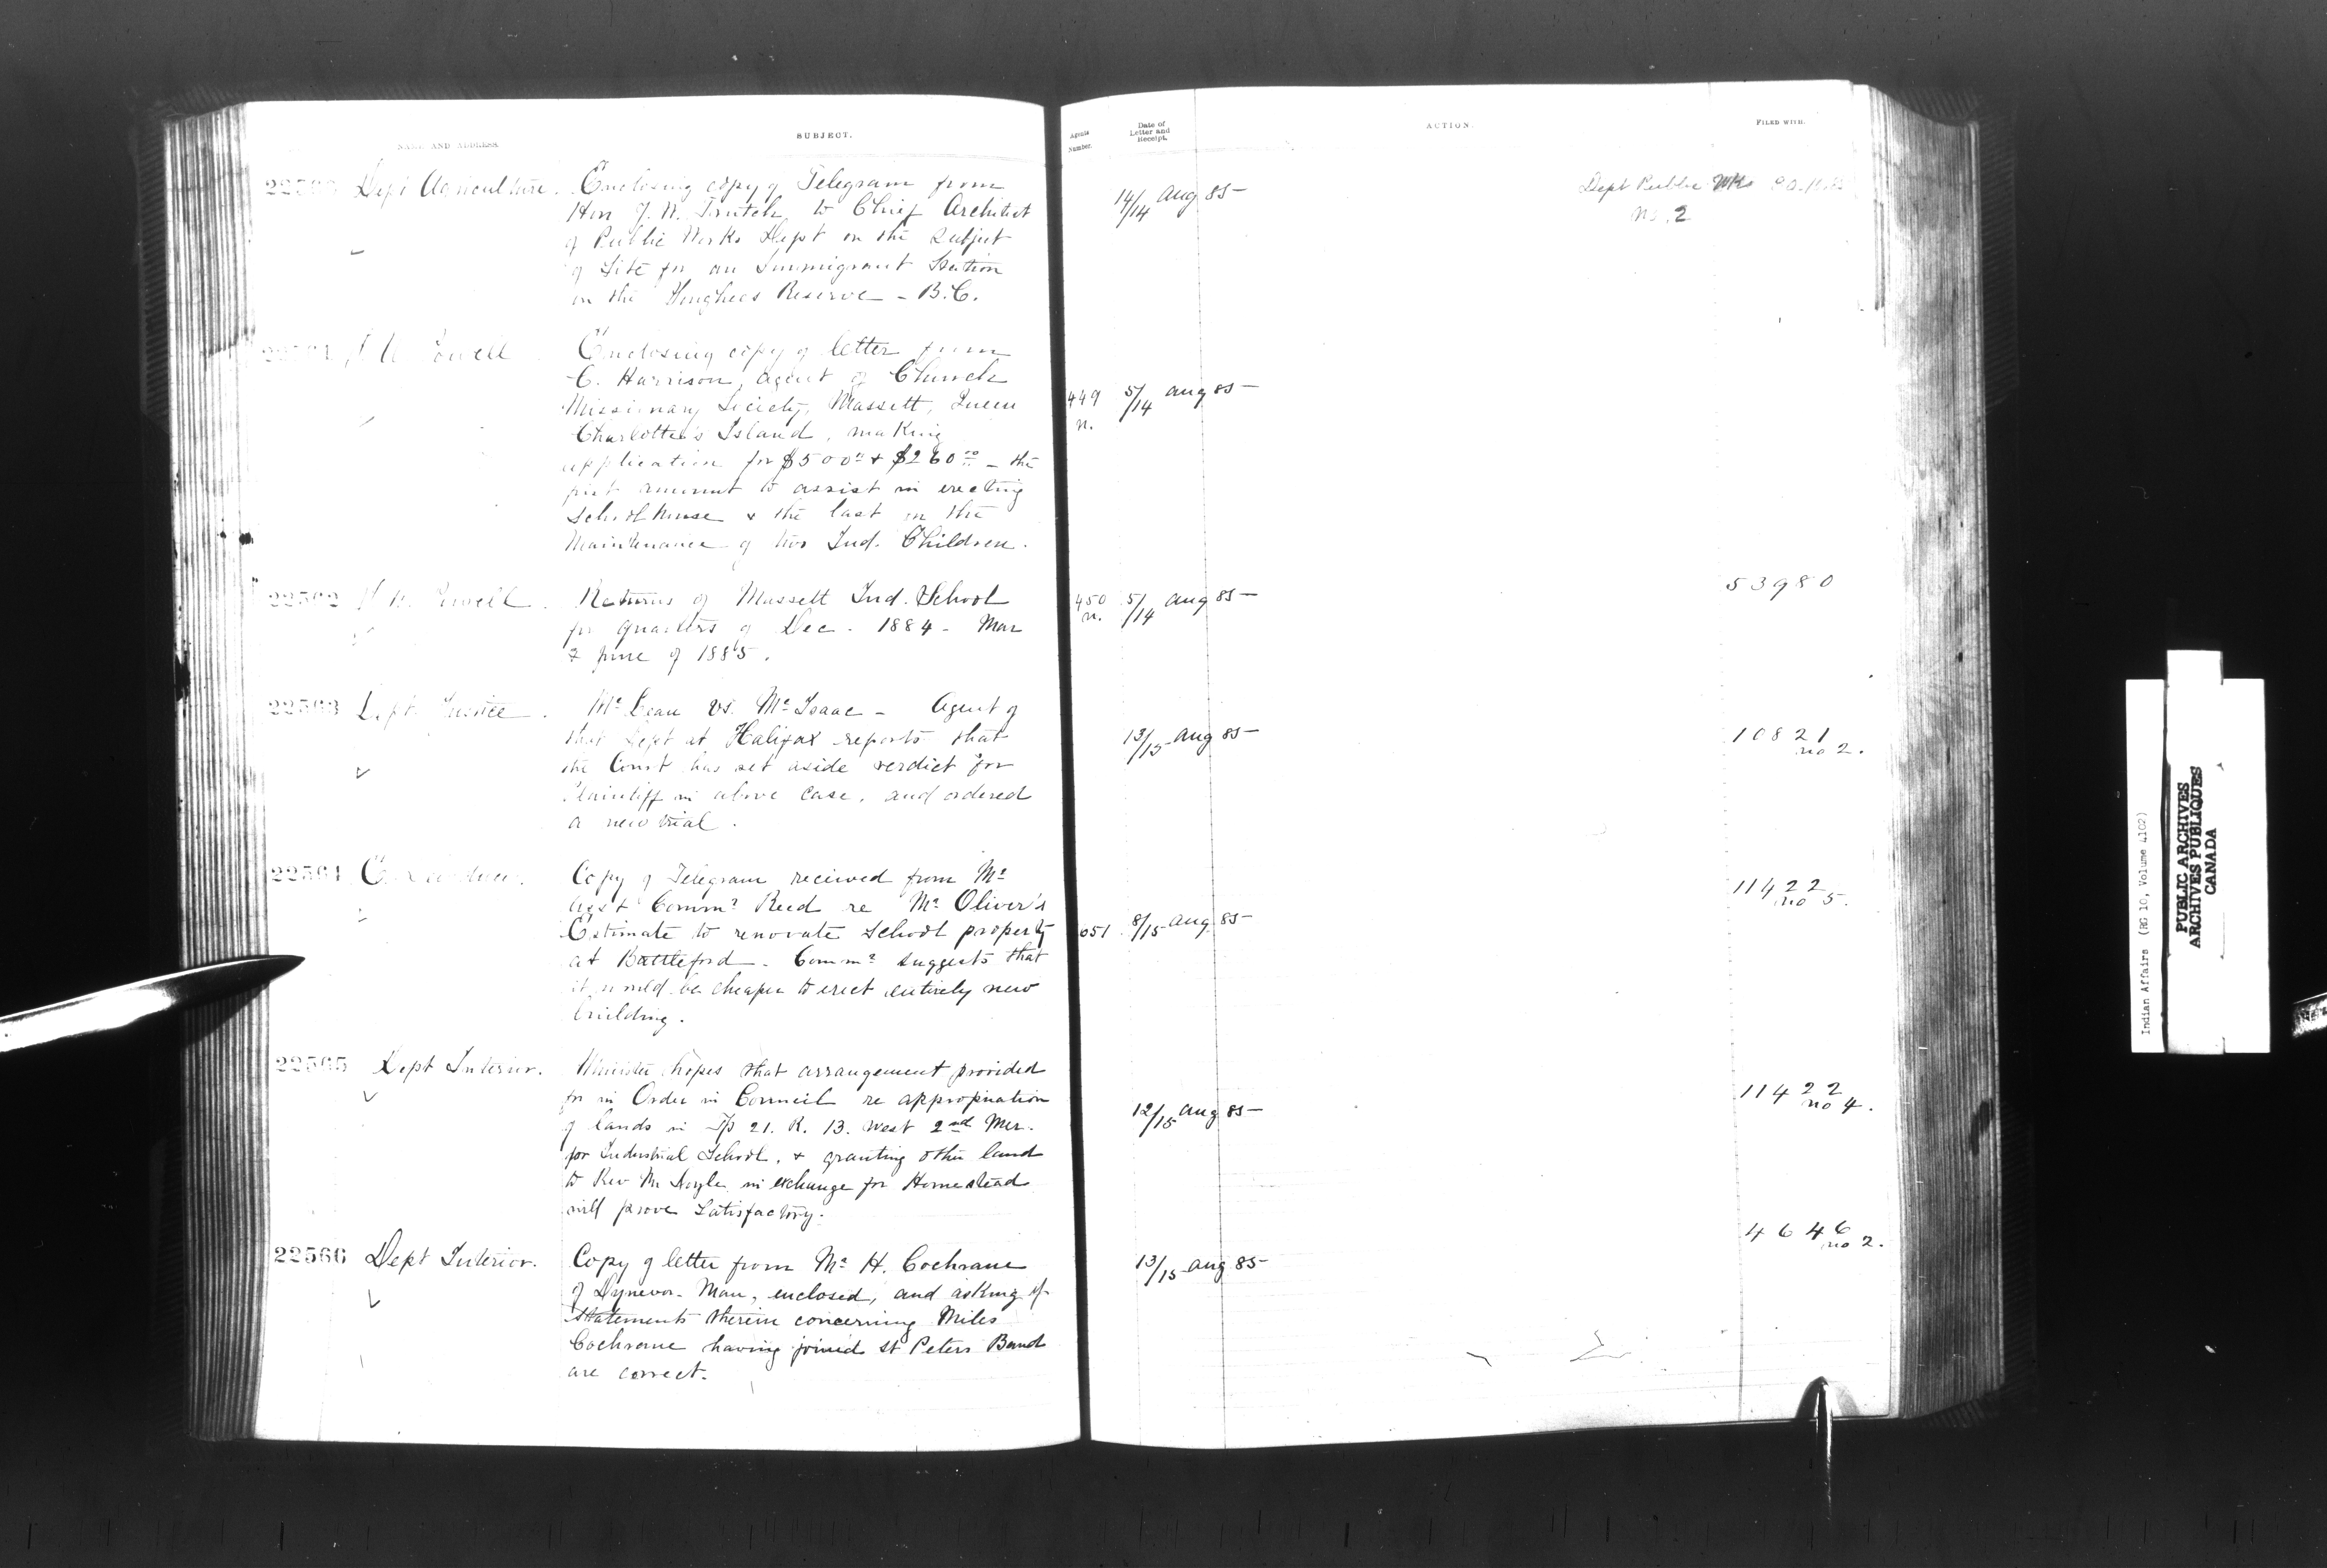 NAME AND ADDRESS.
SUBJECT.
Agents Number.
Date of Letter and Receipt.
ACTION.
FILED WITH.
Dept Agriculture. Enclosing copy of Telegram from
Hon J. W. Trutch, to Chief Architect
of Public Works Dept on the subject
of Site for an Immigrant Station
on the Songhees Reserve - B.C.
14/14 Aug 85
Dept Public Wks
No. 2
Powell Enclosing copy of letter from
C. Harrison, agent of Church
Missionary Society, Massett, Queen
Charlotte's Island, making
application for $500.00 + $260.00 - the
first amount to assist in erecting
School house & the last in the
Maintenance of two Ind. Children.
449 n. 5/14 Aug 85
22562 Powell. Returns of Massett Ind. School
for quarters of Dec. 1884 - Mar
& June of 1885.
450 n. 5/14 Aug 85
53980
22563 Dept Justice. McLean vs. McIsaac - Agent of
that Dept at Halifax reports that
the Court has set aside verdict for
Plaintiff in above case, and ordered
a new trial.
13/15 Aug 85
10821
no 2.
22564 Copy of Telegram received from Mr
Asst Commr Reed re Mr Oliver's
Estimate to renovate School property
at Battleford. Commr suggests that
it would be cheaper to erect entirely new
building.
051 8/15 Aug 85
11422
no 5.
22565 Dept Interior. Minister hopes that arrangement provided
for in Order in Council re appropriation
of lands in Tp 21. R. 13. West 2nd Mer.
for Industrial School, & granting other land
to Rev Mr Hoyle in exchange for Homestead
will prove Satisfactory.
12/15 Aug 85
11422
no 4.
22566 Dept Interior. Copy of letter from Mr H. Cochrane
of Dynevor. Man, enclosed, and asking if
Statements therein concerning Miles
Cochrane having joined St Peters Band
are correct.
13/15 Aug 85
4646
no 2.
Indian Affairs (RG 10, Volume 4102)
PUBLIC ARCHIVES
ARCHIVES PUBLIQUES
CANADA